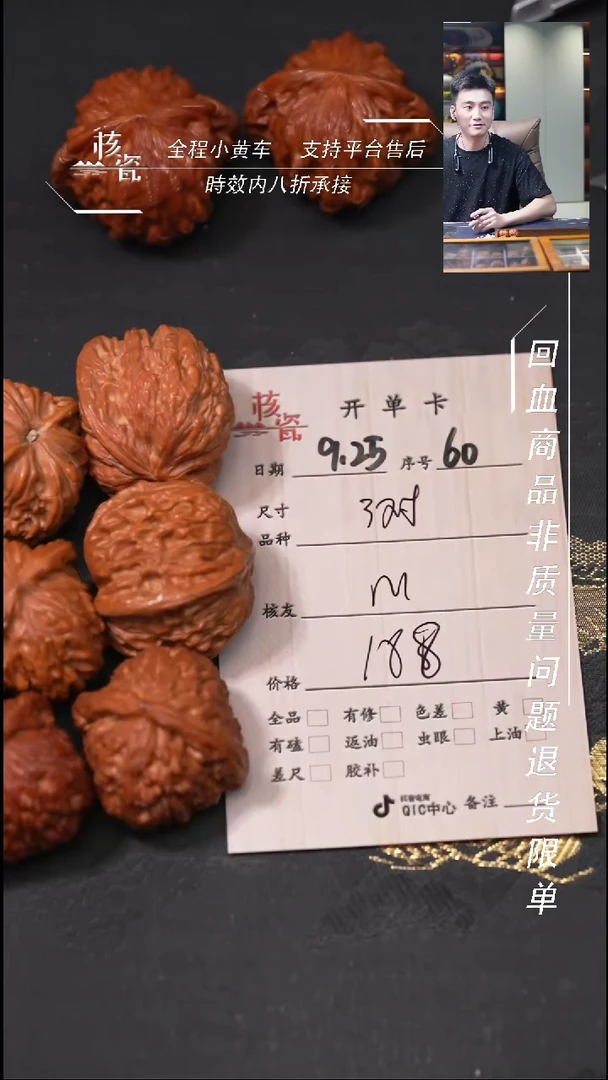 核瓷
全程小黄车 支持平台售后
時效内八折承接
回血商品非质量问题退货限单
核瓷
开单卡
日期 9.25 序号 60
尺寸 3对
品种
核友 m
价格 188
全品 有修 色差 黄
有磕 返油 虫眼 上油
差尺 胶补
抖音电商
QIC中心 备注